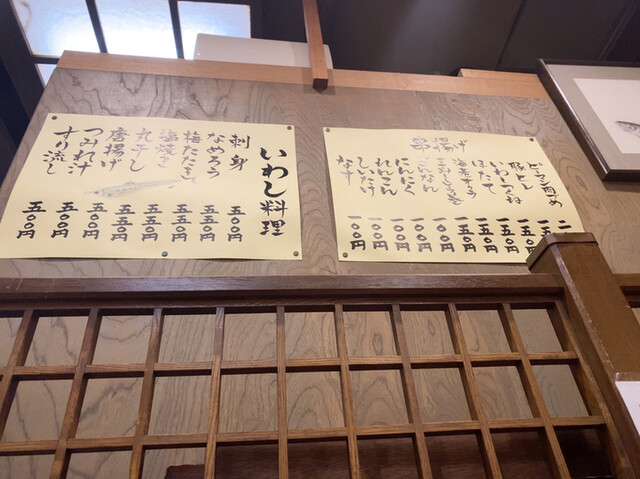 いわし料理
刺身 五〇〇円
なめろう 五〇〇円
梅たたき 五五〇円
塩焼き 五五〇円
丸干し 五五〇円
唐揚げ 五五〇円
つみれ汁 五〇〇円
すり流し 五〇〇円
串揚げ
ピーマン肉詰め
豚ヒレ
いわしつくね
ほたて
海老
ぎんなん 一〇〇円
にんにく 一〇〇円
れんこん 一〇〇円
しいたけ 一〇〇円
なす 一〇〇円